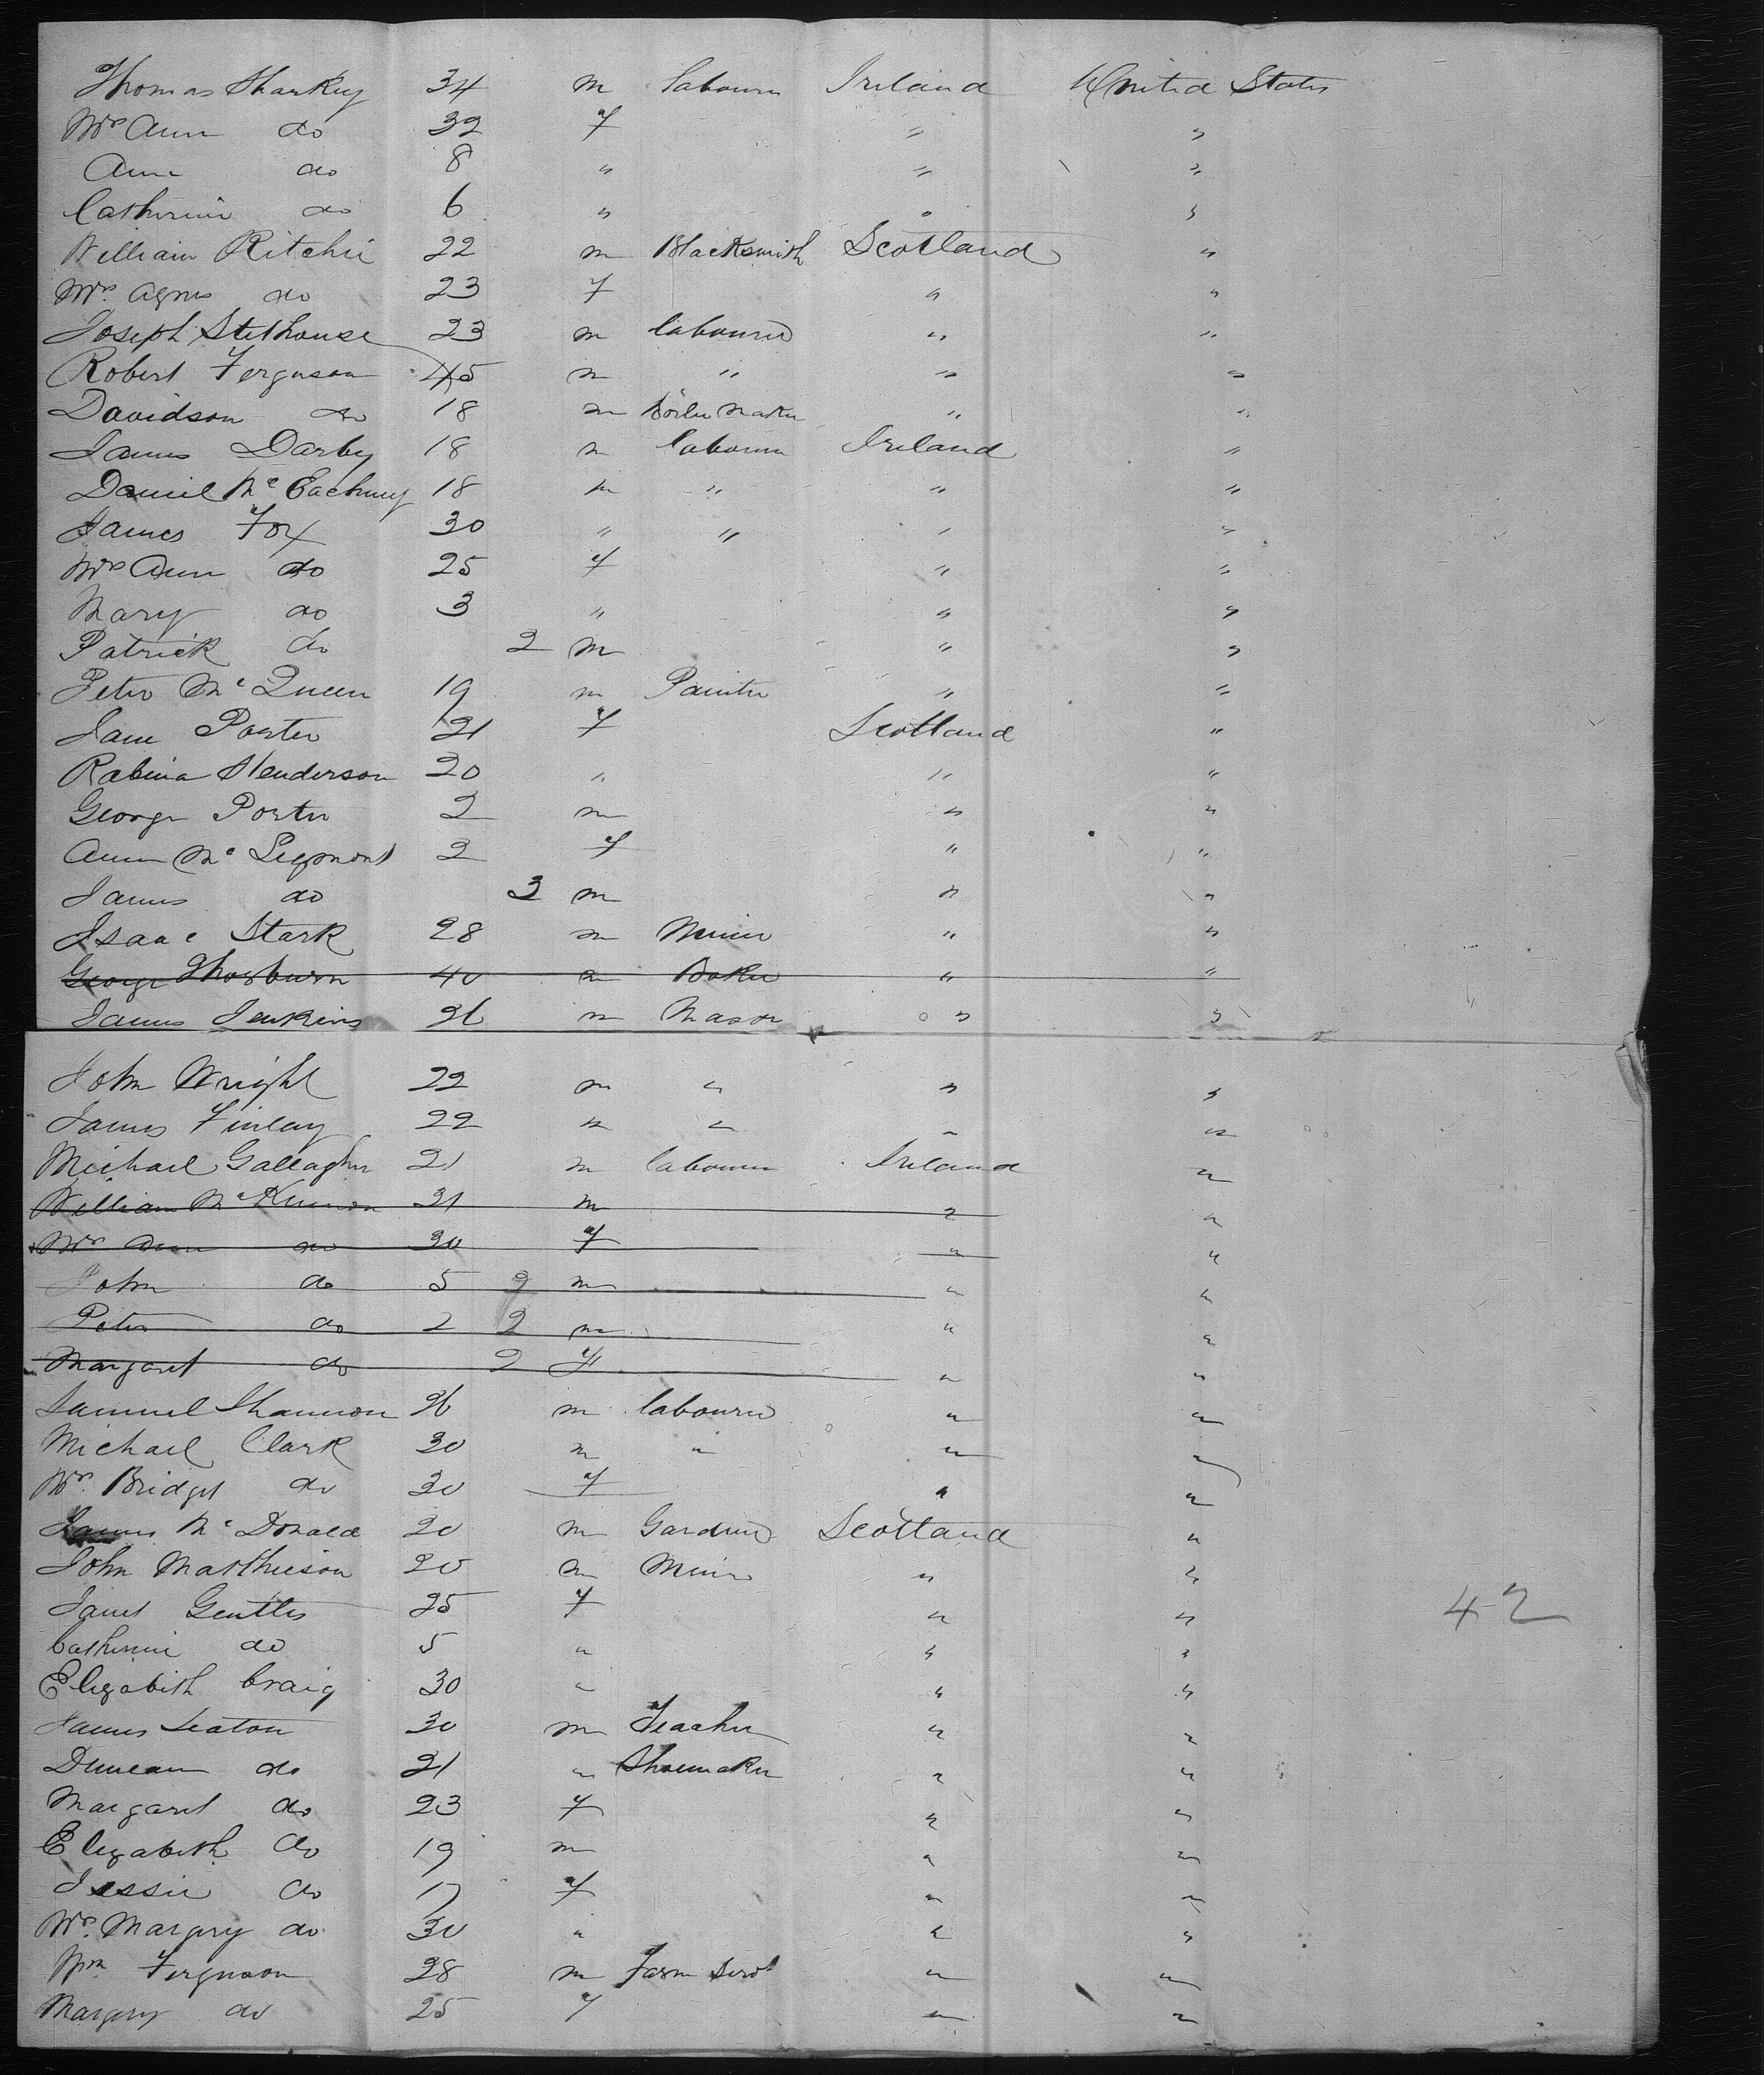 Thomas Sharkey 34 m labourer Ireland United States
Mrs Ann do 32 f " "
Ann do 8 " " "
Catherine do 6 " " "
William Ritchie 22 m Blacksmith Scotland "
Mrs. Agnes do 23 f " "
Joseph Stethouse 23 m labourer " "
Robert Ferguson 45 m " " "
Davidson do 18 m Boiler Maker " "
James Darby 18 m labourer Ireland "
Daniel Mc Eachney 18 m " " "
James Fox 30 " " " "
Mrs Ann do 25 f " "
Mary do 3 " " "
Patrick do 2 m " "
Peter Mc Queen 19 m Painter " "
Jane Porter 21 f Scotland "
Robina Henderson 20 " " "
George Porter 2 m " "
Ann Mc 2 f " "
James do 3 m " "
Isaac Stark 28 m Miner " "
George Thorburn 40 m Baker " "
James Jenkins 26 m Mason " "
John Wright 22 m " " "
James Finlay 22 m " " "
Michael Gallagher 21 m labourer Ireland "
William Mc Kinnon 31 m " "
Mrs Ann do 30 f " "
John do 5 2 m " "
Peter do 2 2 m " "
Margaret do 2 f " "
Samuel Shannon 26 m labourer " "
Michael Clark 30 m " " "
Mrs. Bridget do 30 f " "
James Mc Donald 20 m Gardener Scotland "
John Matthieson 20 m Miner " "
Janet Gentles 25 f " "
42
Catherine do 5 " " "
Elizabeth Craig 30 " " "
James Seaton 30 m Teacher " "
Duncan do 21 " Shoemaker " "
Margaret do 23 f " "
Elizabeth do 19 m " "
Jessie do 17 f " "
Mrs. Margery do 30 " " "
Wm Ferguson 28 m Farm Servt " "
Margery do 25 f " "